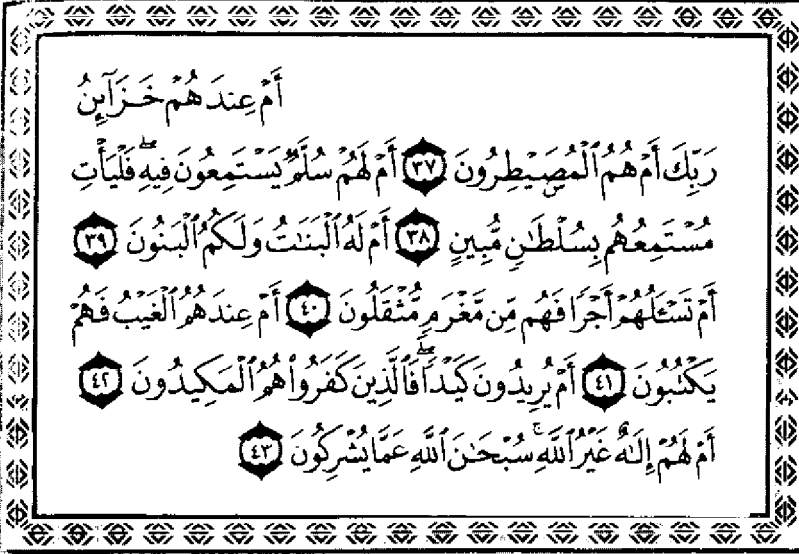 أَمْ عِندَهُمْ خَزَآئِنُ
رَبِّكَ أَمْ هُمُ ٱلْمُصَۣيْطِرُونَ ٣٧ أَمْ لَهُمْ سُلَّمٌ يَسْتَمِعُونَ فِيهِ ۖ فَلْيَأْتِ
مُسْتَمِعُهُم بِسُلْطَٰنٍ مُّبِينٍ ٣٨ أَمْ لَهُ ٱلْبَنَٰتُ وَلَكُمُ ٱلْبَنُونَ ٣٩
أَمْ تَسْـَٔلُهُمْ أَجْرًا فَهُم مِّن مَّغْرَمٍ مُّثْقَلُونَ ٤٠ أَمْ عِندَهُمُ ٱلْغَيْبُ فَهُمْ
يَكْتُبُونَ ٤١ أَمْ يُرِيدُونَ كَيْدًا ۖ فَٱلَّذِينَ كَفَرُوا۟ هُمُ ٱلْمَكِيدُونَ ٤٢
أَمْ لَهُمْ إِلَٰهٌ غَيْرُ ٱللَّهِ ۚ سُبْحَٰنَ ٱللَّهِ عَمَّا يُشْرِكُونَ ٤٣